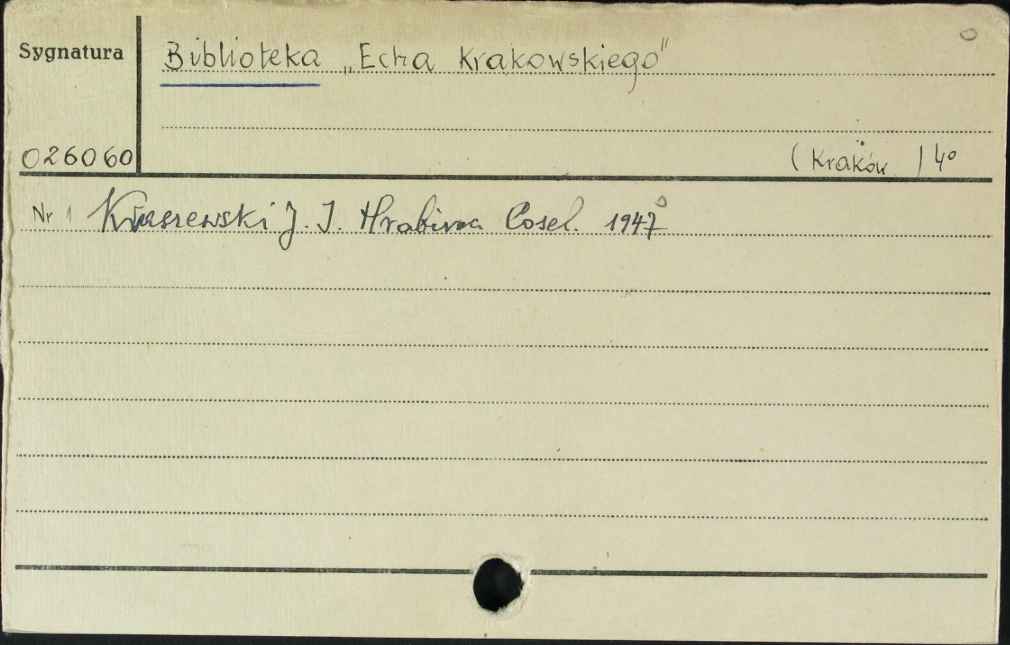 Sygnatura Biblioteka „Echa Krakowskiego"
026060 (Kraków ) 4o
Nr 1 Kraszewski J. I. Hrabina Cosel. 1947